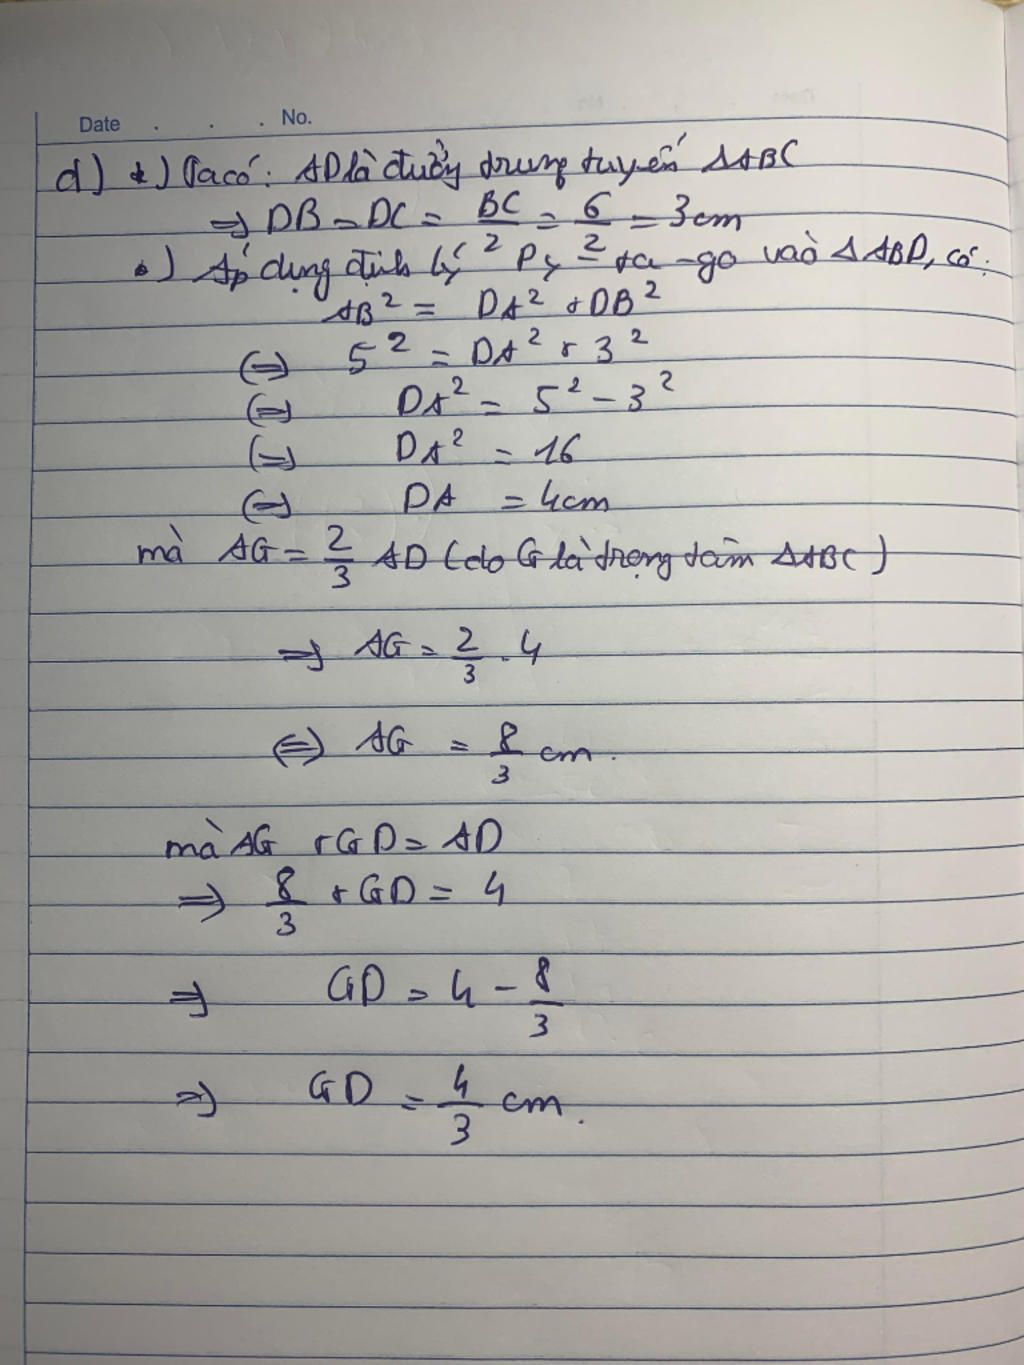 Date . . . No.
d) *) Ta có: AD là đường trung tuyến ΔABC
⇒ DB = DC = BC/2 = 6/2 = 3cm
•) Áp dụng định lý Py-ta-go vào ΔABD, có:
AB² = DA² + DB²
(=) 5² = DA² + 3²
(=) DA² = 5² - 3²
(=) DA² = 16
(=) DA = 4cm
mà AG = 2/3 AD (do G là trọng tâm ΔABC)
⇒ AG = 2/3 . 4
(=) AG = 8/3 cm.
mà AG + GD = AD
⇒ 8/3 + GD = 4
⇒ GD = 4 - 8/3
⇒ GD = 4/3 cm.